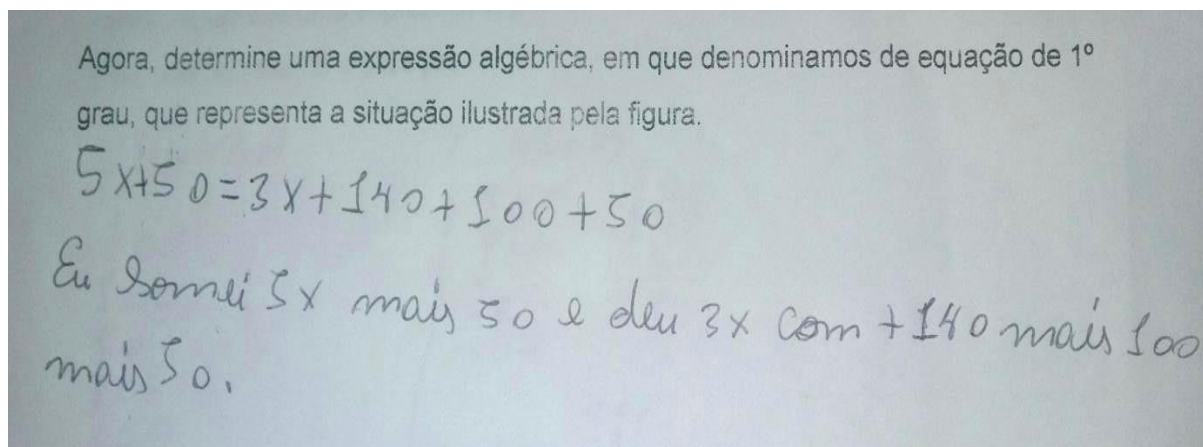 Agora, determine uma expressão algébrica, em que denominamos de equação de 1º
grau, que representa a situação ilustrada pela figura.
5x+50=3x+140+100+50
Eu somei 5x mais 50 e deu 3x com +140 mais 100
mais 50.